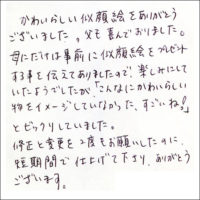 かわいらしい似顔絵をありがとう
ございました。父も喜んでおりました。
母にだけは事前に似顔絵をプレゼント
する事を伝えてありましたので楽しみにして
いたようでしたが、「こんなにかわいらしい
物をイメージしていなかった、すごいね!」
とビックリしていました。
修正と変更を2度もお願いしたのに、
短期間で仕上げて下さり、ありがとう
ございます。